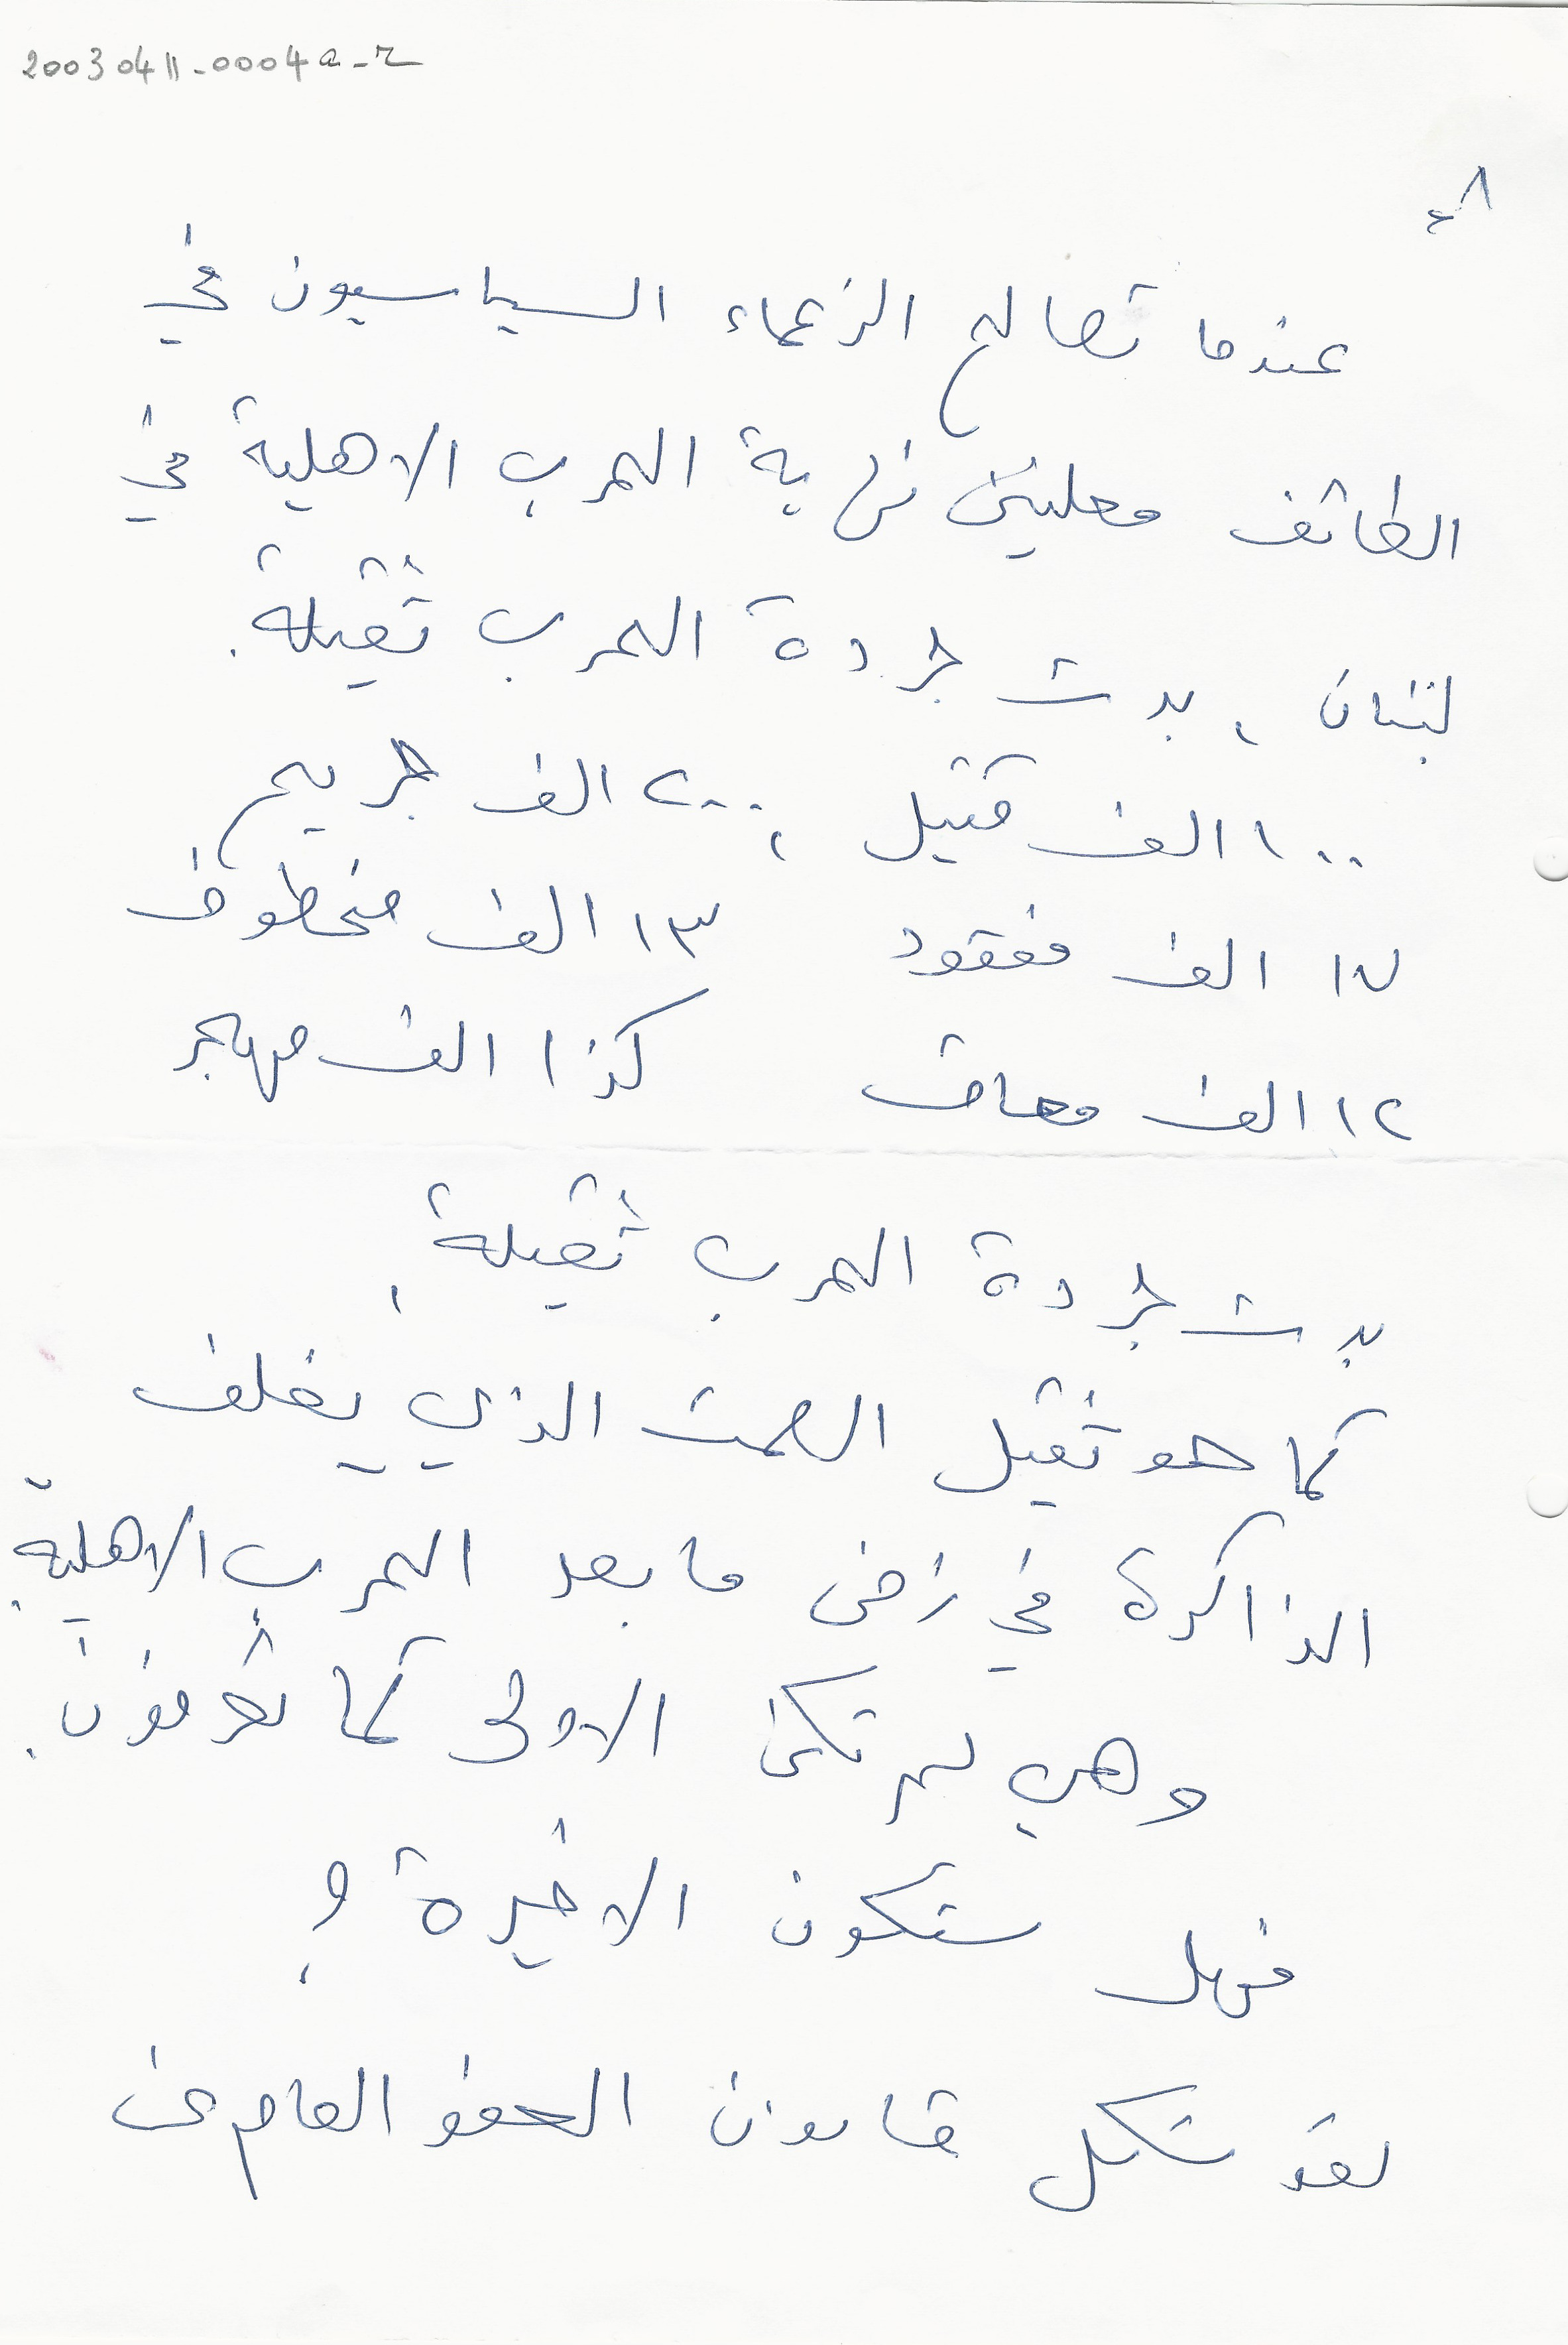 20030411-0004a-r
٨-
عندما تصالح الزعماء السياسيون في
الطائف معلنين نهاية الحرب الاهلية في
لبنان، بدت جردة الحرب ثقيلة.
١٠٠ الف قتيل، ٢٠٠ الف جريح
١٧ الف مفقود ١٣ الف مخطوف
١٢ الف معاق كذا الف مهجر
بدت جردة الحرب ثقيلة.
كما هو ثقيل الصمت الذي يغلف
الذاكرة في زمن ما بعد الحرب الاهلية.
وهي لم تكن الاولى كما تعرفون.
فهل ستكون الاخيرة؟
لقد شكل قانون العفو العام عن